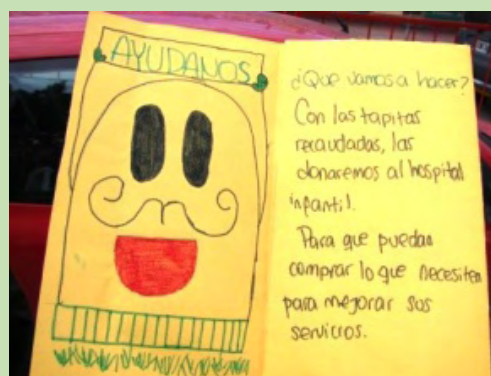 AYUDANOS
¿Que vamos a hacer?
Con las tapitas
recaudadas, las
donaremos al hospital
infantil.
Para que puedan
comprar lo que necesiten
para mejorar sus
servicios.